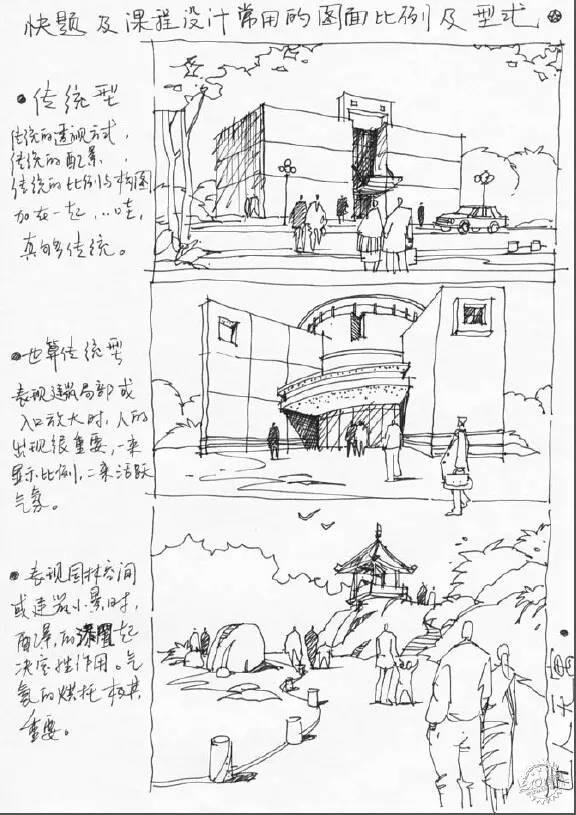 快题及课程设计常用的图面比例及型式
●传统型
传统的透视方式，
传统的配景，
传统的比例与构图
加在一起，…哇，
真的多传统。
●也算传统型
表现建筑局部或
入口放大时，人的
出现很重要，一来
显示比例，二来活跃
气氛。
●表现园林空间
或建筑小景时，
配景的深置起
决定性作用。气
氛的烘托极其
重要。